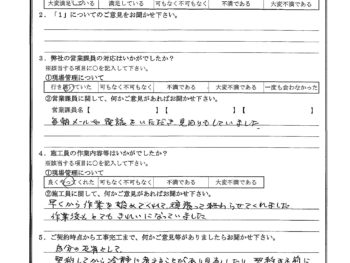 大変満足している 満足している 可もなく不可もなく 不満である 大変不満である
2．「1」についてのご意見をお聞かせ下さい。
3．弊社の営業課員の対応はいかがでしたか？
※該当する項目に○を記入して下さい。
①現場管理について
行き届いていた 可もなく不可もなく 不満である 大変不満である 一度も会わなかった
②営業課員に関して、何かご意見があればお聞かせ下さい。
営業課員名【 】 営業課員名【 】
4．施工員の作業内容等はいかがでしたか？
※該当する項目に○を記入して下さい。
①現場管理について
良くやってくれた 可もなく不可もなく 不満である 大変不満である
②施工員に関して、何かご意見があればお聞かせ下さい。
早くから作業を始めてくて 頑張って終わらせてくれました
作業後もとてもきれいになっていました
5．ご契約時点から工事完工まで、何かご意見等がありましたらお聞かせ下さい。
自分の意見として